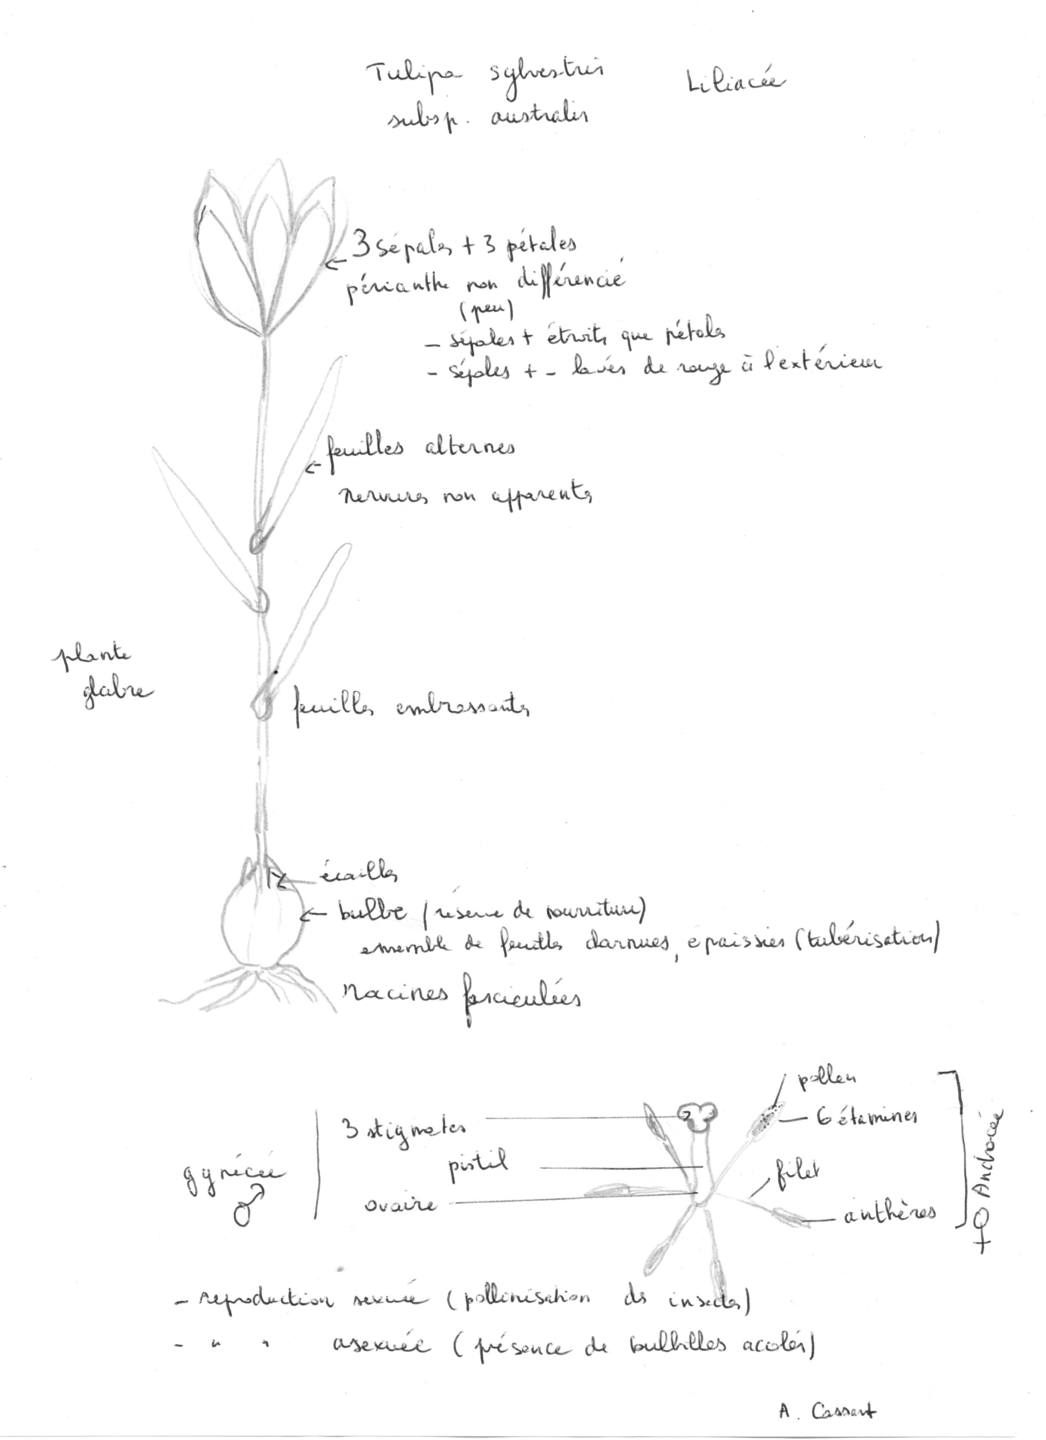 Tulipa sylvestris
subsp. australis
Liliacée
3 sépales + 3 pétales
périanthe non différencié
(peu)
- sépales + étroits que pétales
- sépales + - lavés de rouge à l'extérieur
feuilles alternes
nervures non apparentes
plante
glabre
feuilles embrassantes
écailles
bulbe (réserve de nourriture)
ensemble de feuilles charnues, épaissies (tubérisation)
racines fasciculées
pollen
3 stigmates
6 étamines
gynécée
♂
pistil
filet
ovaire
anthères
♀ Androcée
- reproduction sexuée (pollinisation ds insectes)
- " " asexuée (présence de bulbilles acolés)
A. Cassart